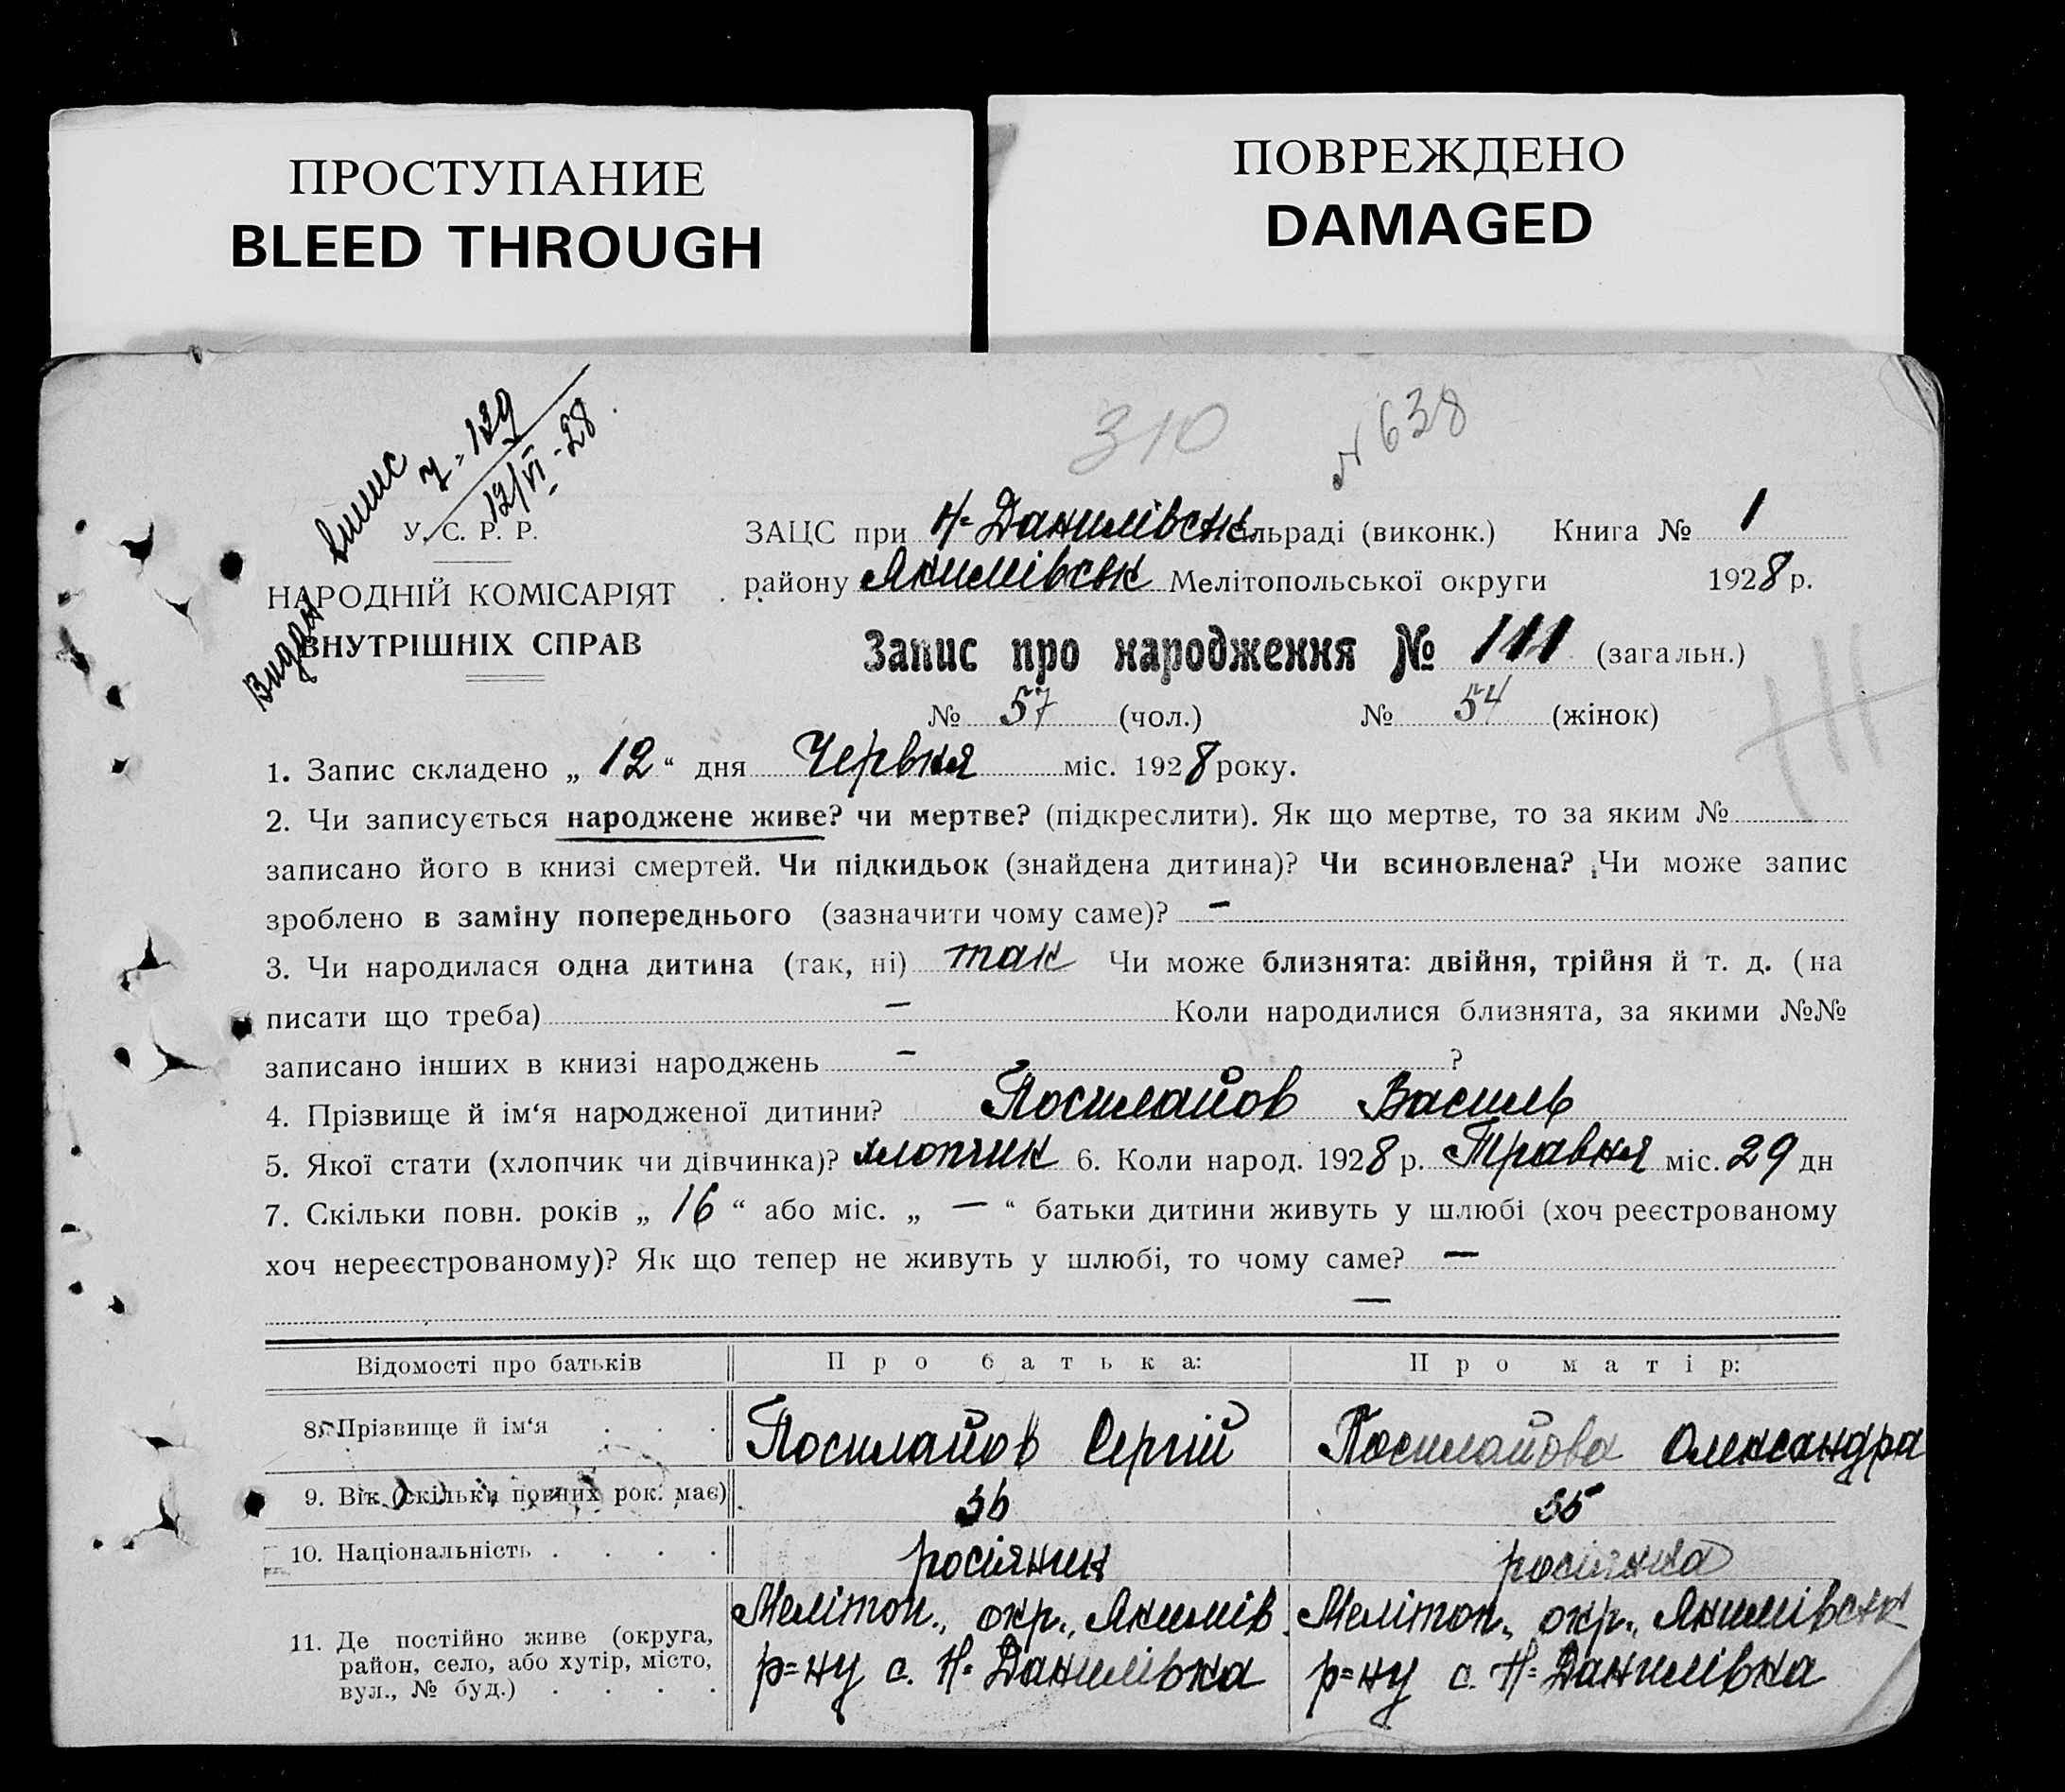 ПРОСТУПАНИЕ
BLEED THROUGH
ПОВРЕЖДЕНО
DAMAGED
310
N 638
Видан
129
12/VI - 28
У. С. Р. Р.
НАРОДНІЙ КОМІСАРІЯТ
ВНУТРІШНІХ СПРАВ
ЗАЦС при Н-Данилівськ сільраді (виконк.) Книга № 1
району Якимівськ Мелітопольської округи 1928 р.
Запис про народження № 111 (загальн.)
№ 57 (чол.) № 54 (жінок)
111
1. Запис складено „ 12 “ дня Червня міс. 1928 року.
2. Чи записується народжене живе? чи мертве? (підкреслити). Як що мертве, то за яким №
записано його в книзі смертей. Чи підкидьок (знайдена дитина)? Чи всиновлена? Чи може запис
зроблено в заміну попереднього (зазначити чому саме)? –
3. Чи народилася одна дитина (так, ні) так Чи може близнята: двійня, трійня й т. д. (на
писати що треба) – Коли народилися близнята, за якими №№
записано інших в книзі народжень – ?
4. Прізвище й ім‘я народженої дитини? Посилайов Василь
5. Якої стати (хлопчик чи дівчинка)? хлопчик 6. Коли народ. 1928 р. Травня міс. 29 дн
7. Скільки повн. років „ 16 “ або міс. „ — “ батьки дитини живуть у шлюбі (хоч реєстрованому
хоч нереєстрованому)? Як що тепер не живуть у шлюбі, то чому саме? —
—
Відомості про батьків Про батька: Про матір:
8. Прізвище й ім‘я . . . Посилайов Сергій Посилайова Олександра
9. Вік (скільки повних рок. має) 36 35
10. Національність . . . . росіянин росіянка
11. Де постійно живе (округа, район, село, або хутір, місто, вул., № буд.) . . . .
Мелітоп., окр., Якимів.
р=ну с. Н=Данилівка
Мелітоп., окр., Якимівськ
р=ну с. Н=Данилівка